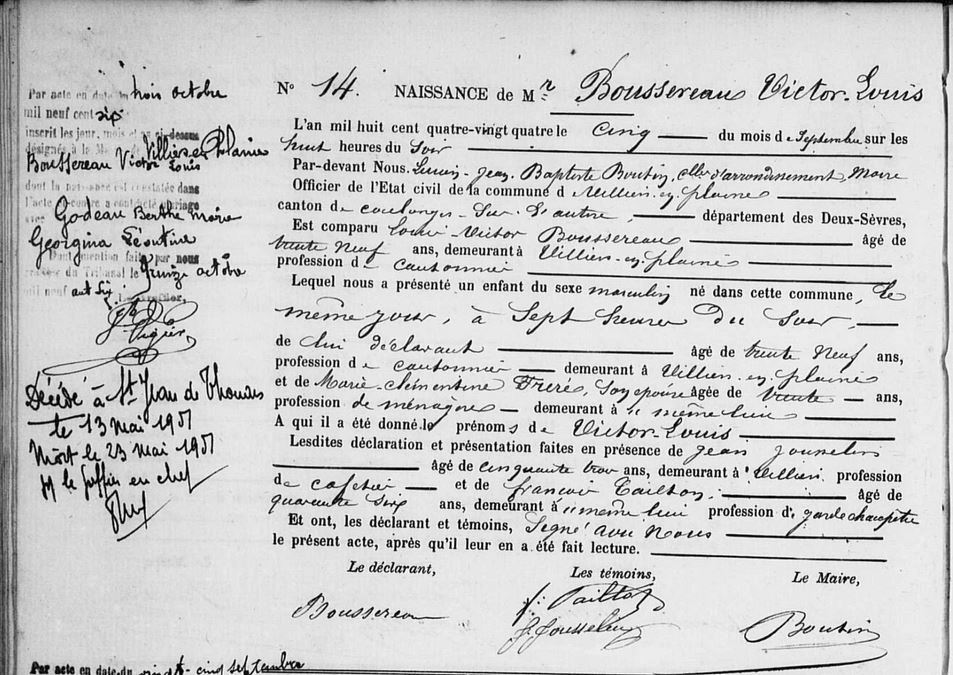 Par acte en date du trois octobre
mil neuf cent six
inscrit les jour, mois et an ci-dessus
désignés à la M de Villiers en Plaine
Boussereau Victor Louis
dont la naissance est constatée dans
l'acte ci-contre a contracté mariage
avec
Godeau Berthe Marie
Georgina Léontine
mention faite par nous
du Tribunal le Quinze octobre
mil neuf cent Six
Le Greffier,
Décédé à St Jean de Thouars
le 13 mai 1951
Mort le 23 mai 1951
le greffier en chef
N° 14. NAISSANCE de Mr Boussereau Victor-Louis
L'an mil huit cent quatre-vingt quatre le Cinq du mois de Septembre sur les
huit heures du Soir
Par-devant Nous, Jean Baptiste Boutin, d'arrondissement, Maire
Officier de l'Etat civil de la commune d Villiers-en-plaine
canton de coulonges-Sur-L'autire, département des Deux-Sèvres,
Est comparu Louis Victor Boussereau âgé de
trente Neuf ans, demeurant à Villiers-en-plaine
profession d cantonnier
Lequel nous a présenté un enfant du sexe masculin né dans cette commune, le
même jour, à Sept heures du Soir,
de lui déclarant âgé de trente Neuf ans,
profession de cantonnier demeurant à Villiers-en-plaine
et de Marie-Clémentine Freré, Son épouse âgée de trente ans,
profession de ménagère demeurant à même lieu
A qui il a été donné le prénoms de Victor-Louis.
Lesdites déclaration et présentation faites en présence de Jean Jousselin
âgé de cinquante trois ans, demeurant à Villiers profession
de cafetier et de françois Taillon, âgé de
quarante six ans, demeurant à même lieu profession d garde champêtre
Et ont, les déclarant et témoins, Signé avec Nous
le présent acte, après qu'il leur en a été fait lecture.
Le déclarant, Les témoins, Le Maire,
Boussereau
J. Jousselin
Boutin
Par acte en date du vingt-cinq septembre